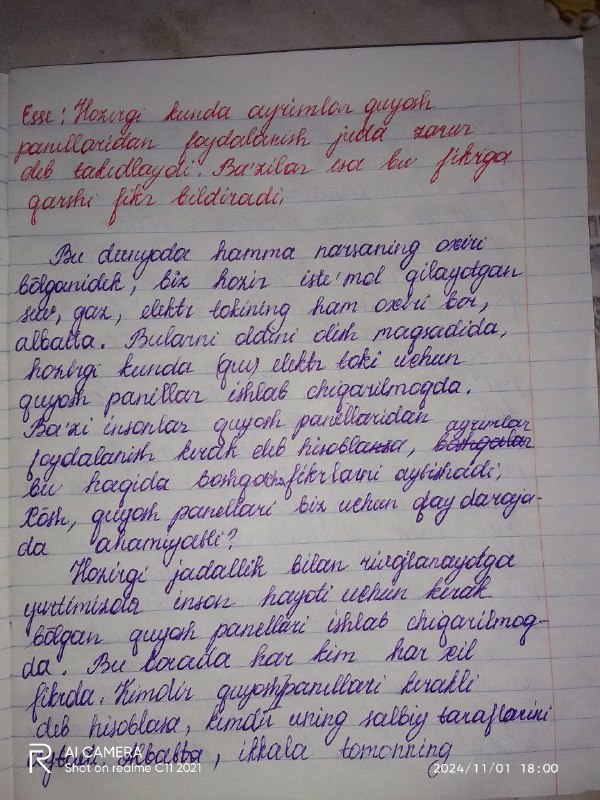 Esse: Hozirgi kunda ayrimlar quyosh
panellaridan foydalanish juda zarur
deb takidlaydi. Ba'zilar esa bu fikrga
qarshi fikr bildiradi.
Bu dunyoda hamma narsaning oxiri
bōlganidek, biz hozir iste'mol qilayotgan
suv, gaz, elektr tokining ham oxiri bor,
albatta. Bularni oldini olish maqsadida,
hozirgi kunda (quy) elektr toki uchun
quyosh panillar ishlab chiqarilmoqda.
Ba'zi insonlar quyosh panellaridan ayrimlar
foydalanish kerak deb hisoblansa, boshqalar
bu haqida boshqacha fikrlarni aytishadi.
Xōsh, quyosh panellari biz uchun qay daraja-
da ahamiyatli?
Hozirgi jadallik bilan rivojlanayotga
yurtimizda inson hayoti uchun kerak
bōlgan quyosh panellari ishlab chiqarilmoq-
da. Bu borada har kim har xil
fikrda. Kimdir quyosh panellari kerakli
deb hisoblasa, kimdir uning salbiy taraflarini
aytishadi. Albatta, ikkala tomonning
AI CAMERA
Shot on realme C11 2021
2024/11/01 18:00